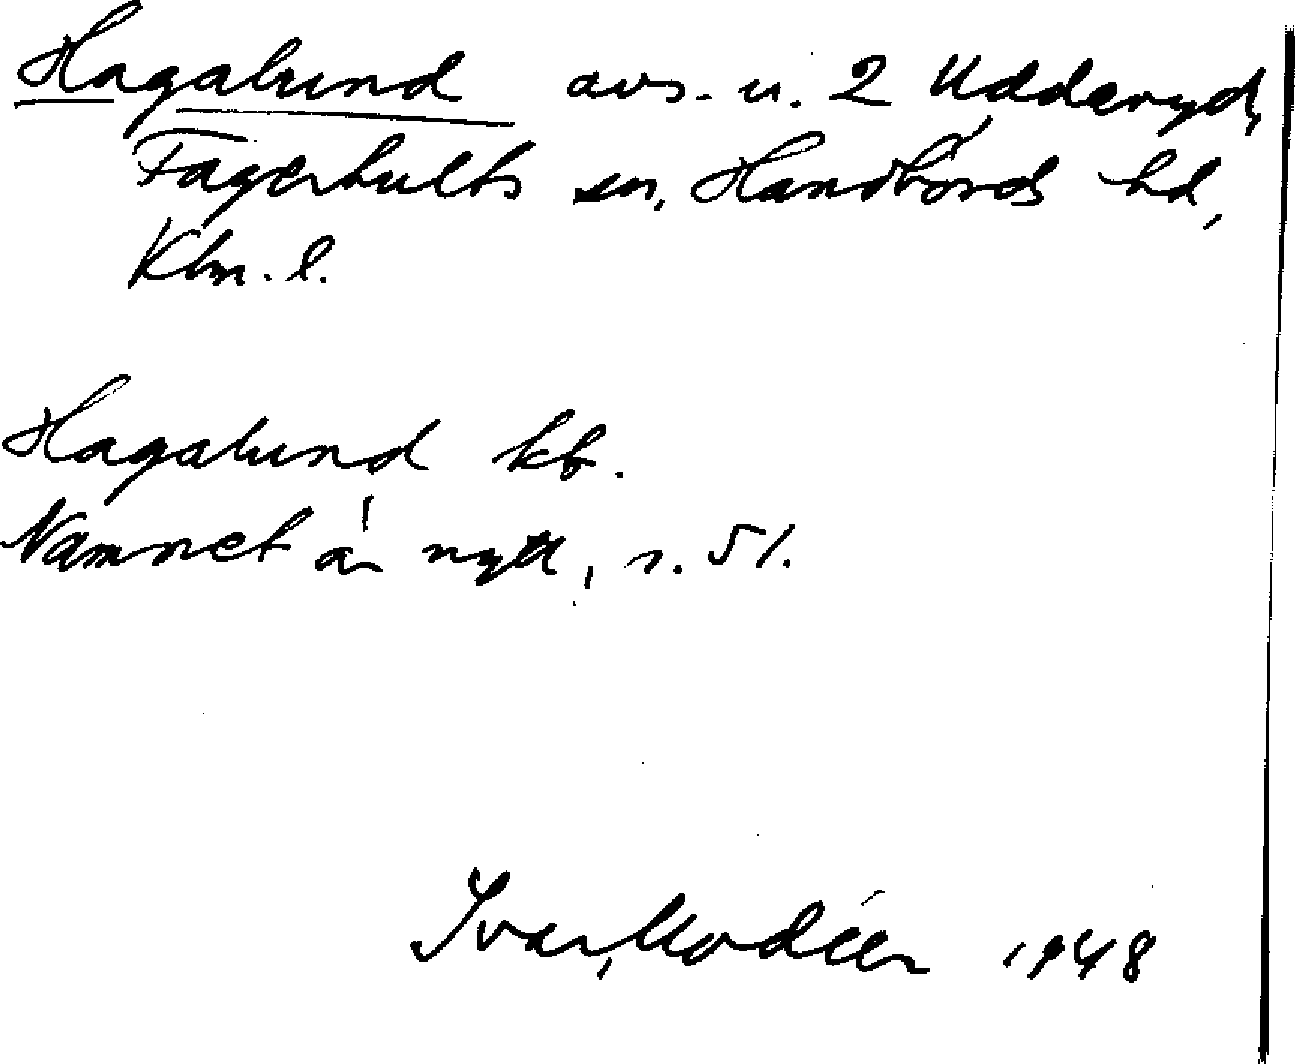 Hagalund avs. u. 2 Udderyd,
Fagerhults sn, Handbörds hd,
Klm. l.
Hagalund kb.
Namnet är nytt, s. 51.
Ivar Modéer 1948